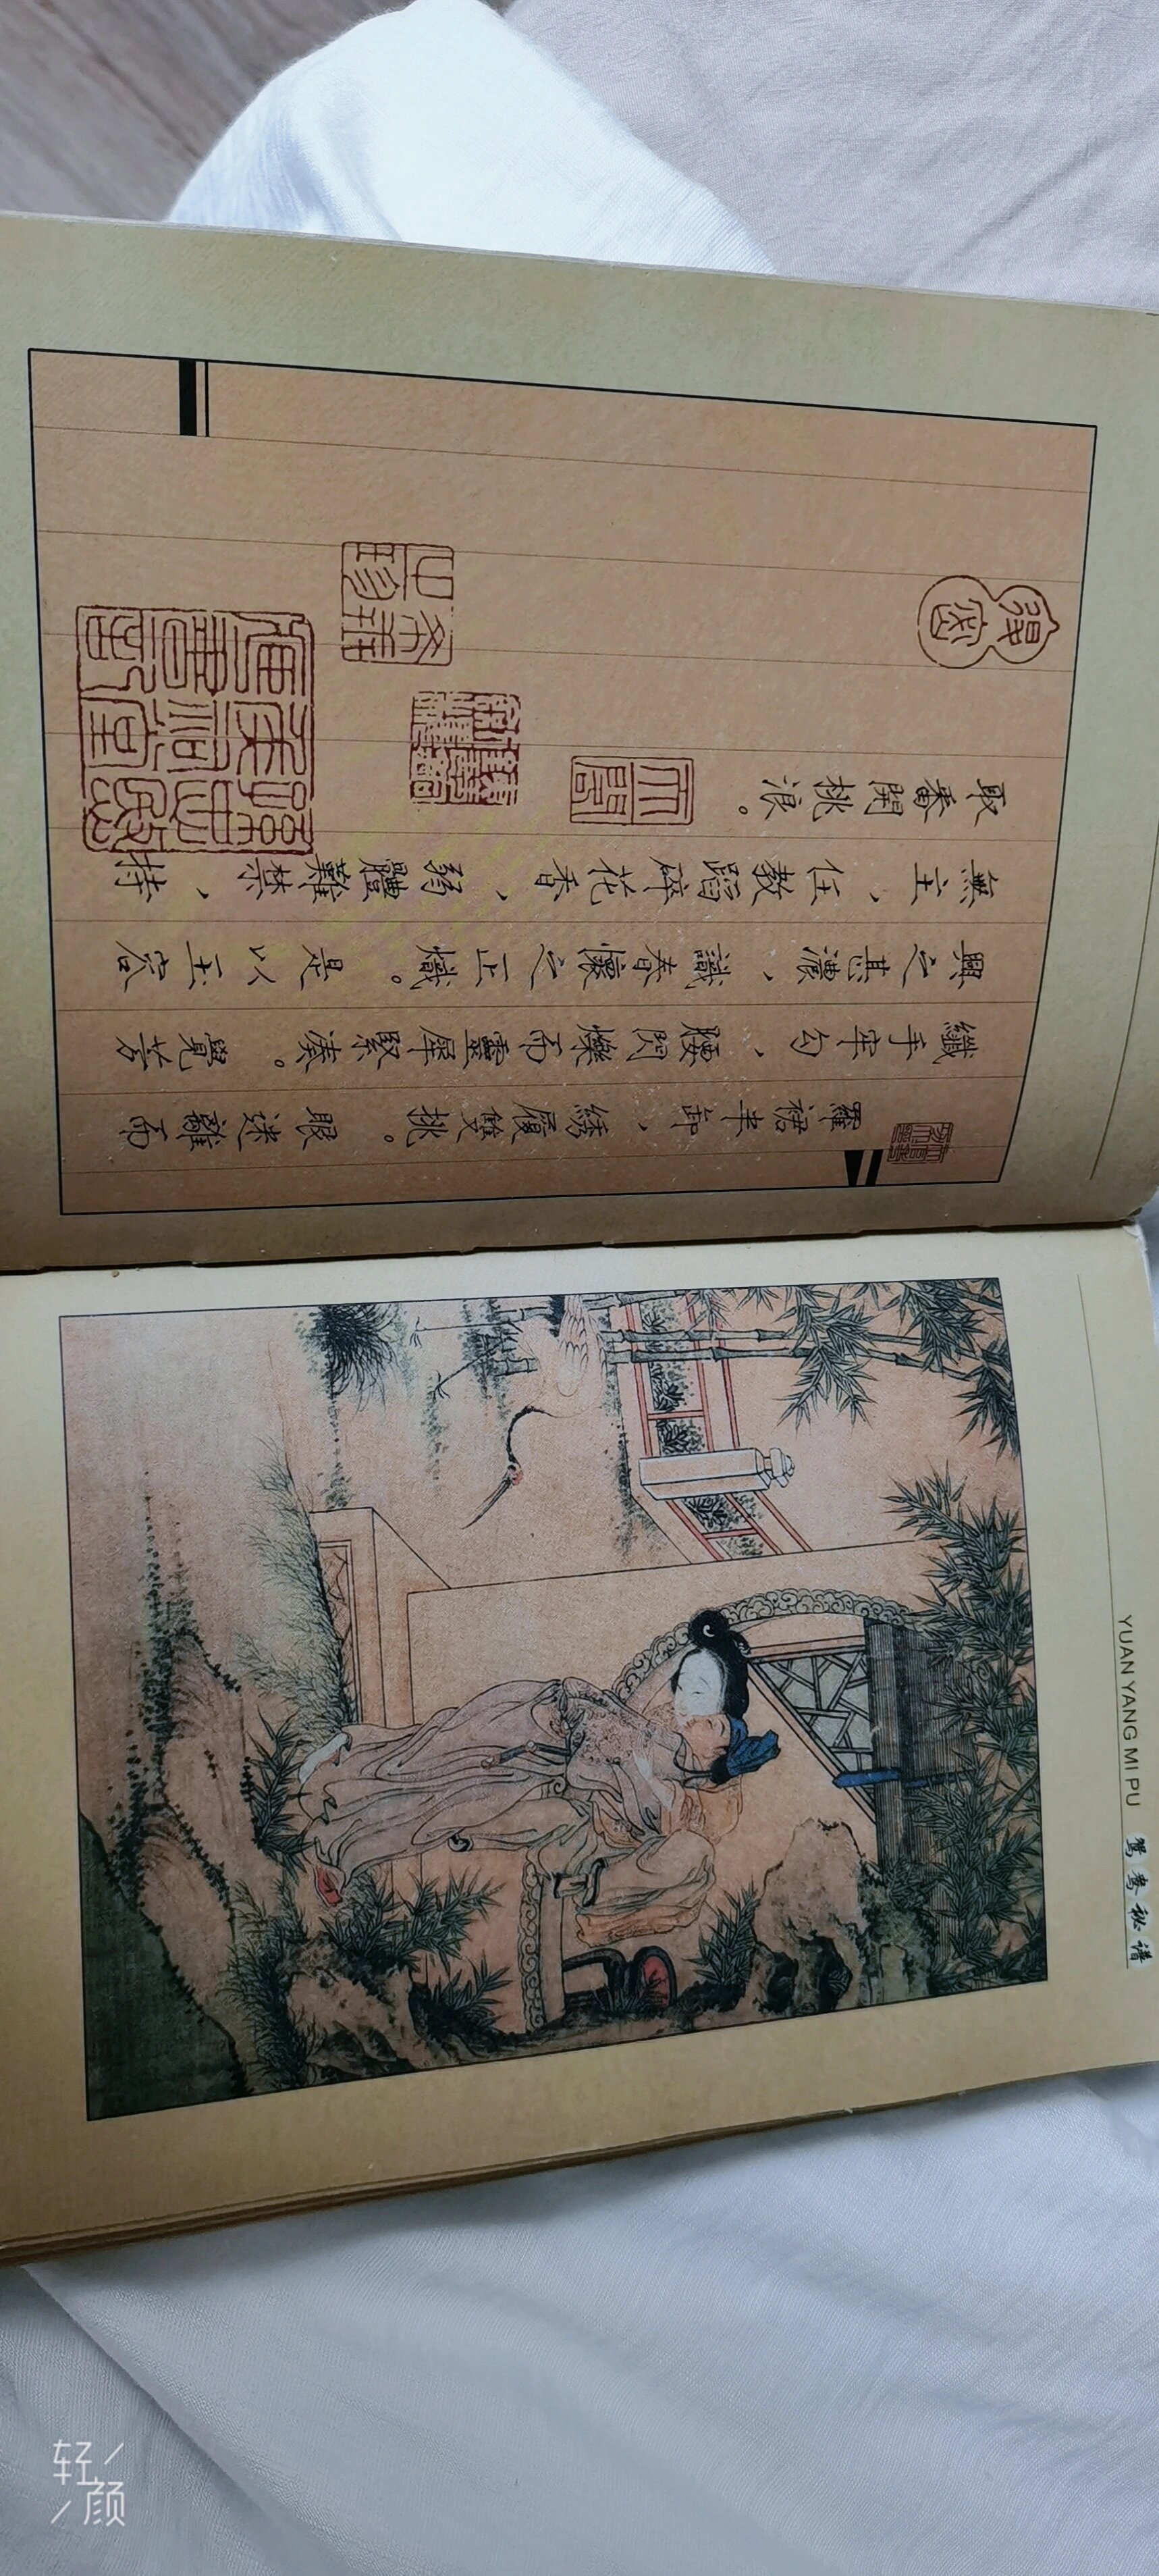 羅裙半卸，綉履雙挑。眼迷離而
纖手牢勾，腰閃爍而靈犀緊湊。覺芳
興之甚濃，識春懷之正熾。是以玉容
無主，任教蹈碎花香，弱體難禁，持
取番開桃浪。
YUAN YANG MI PU 鴛鴦秘譜
轻颜